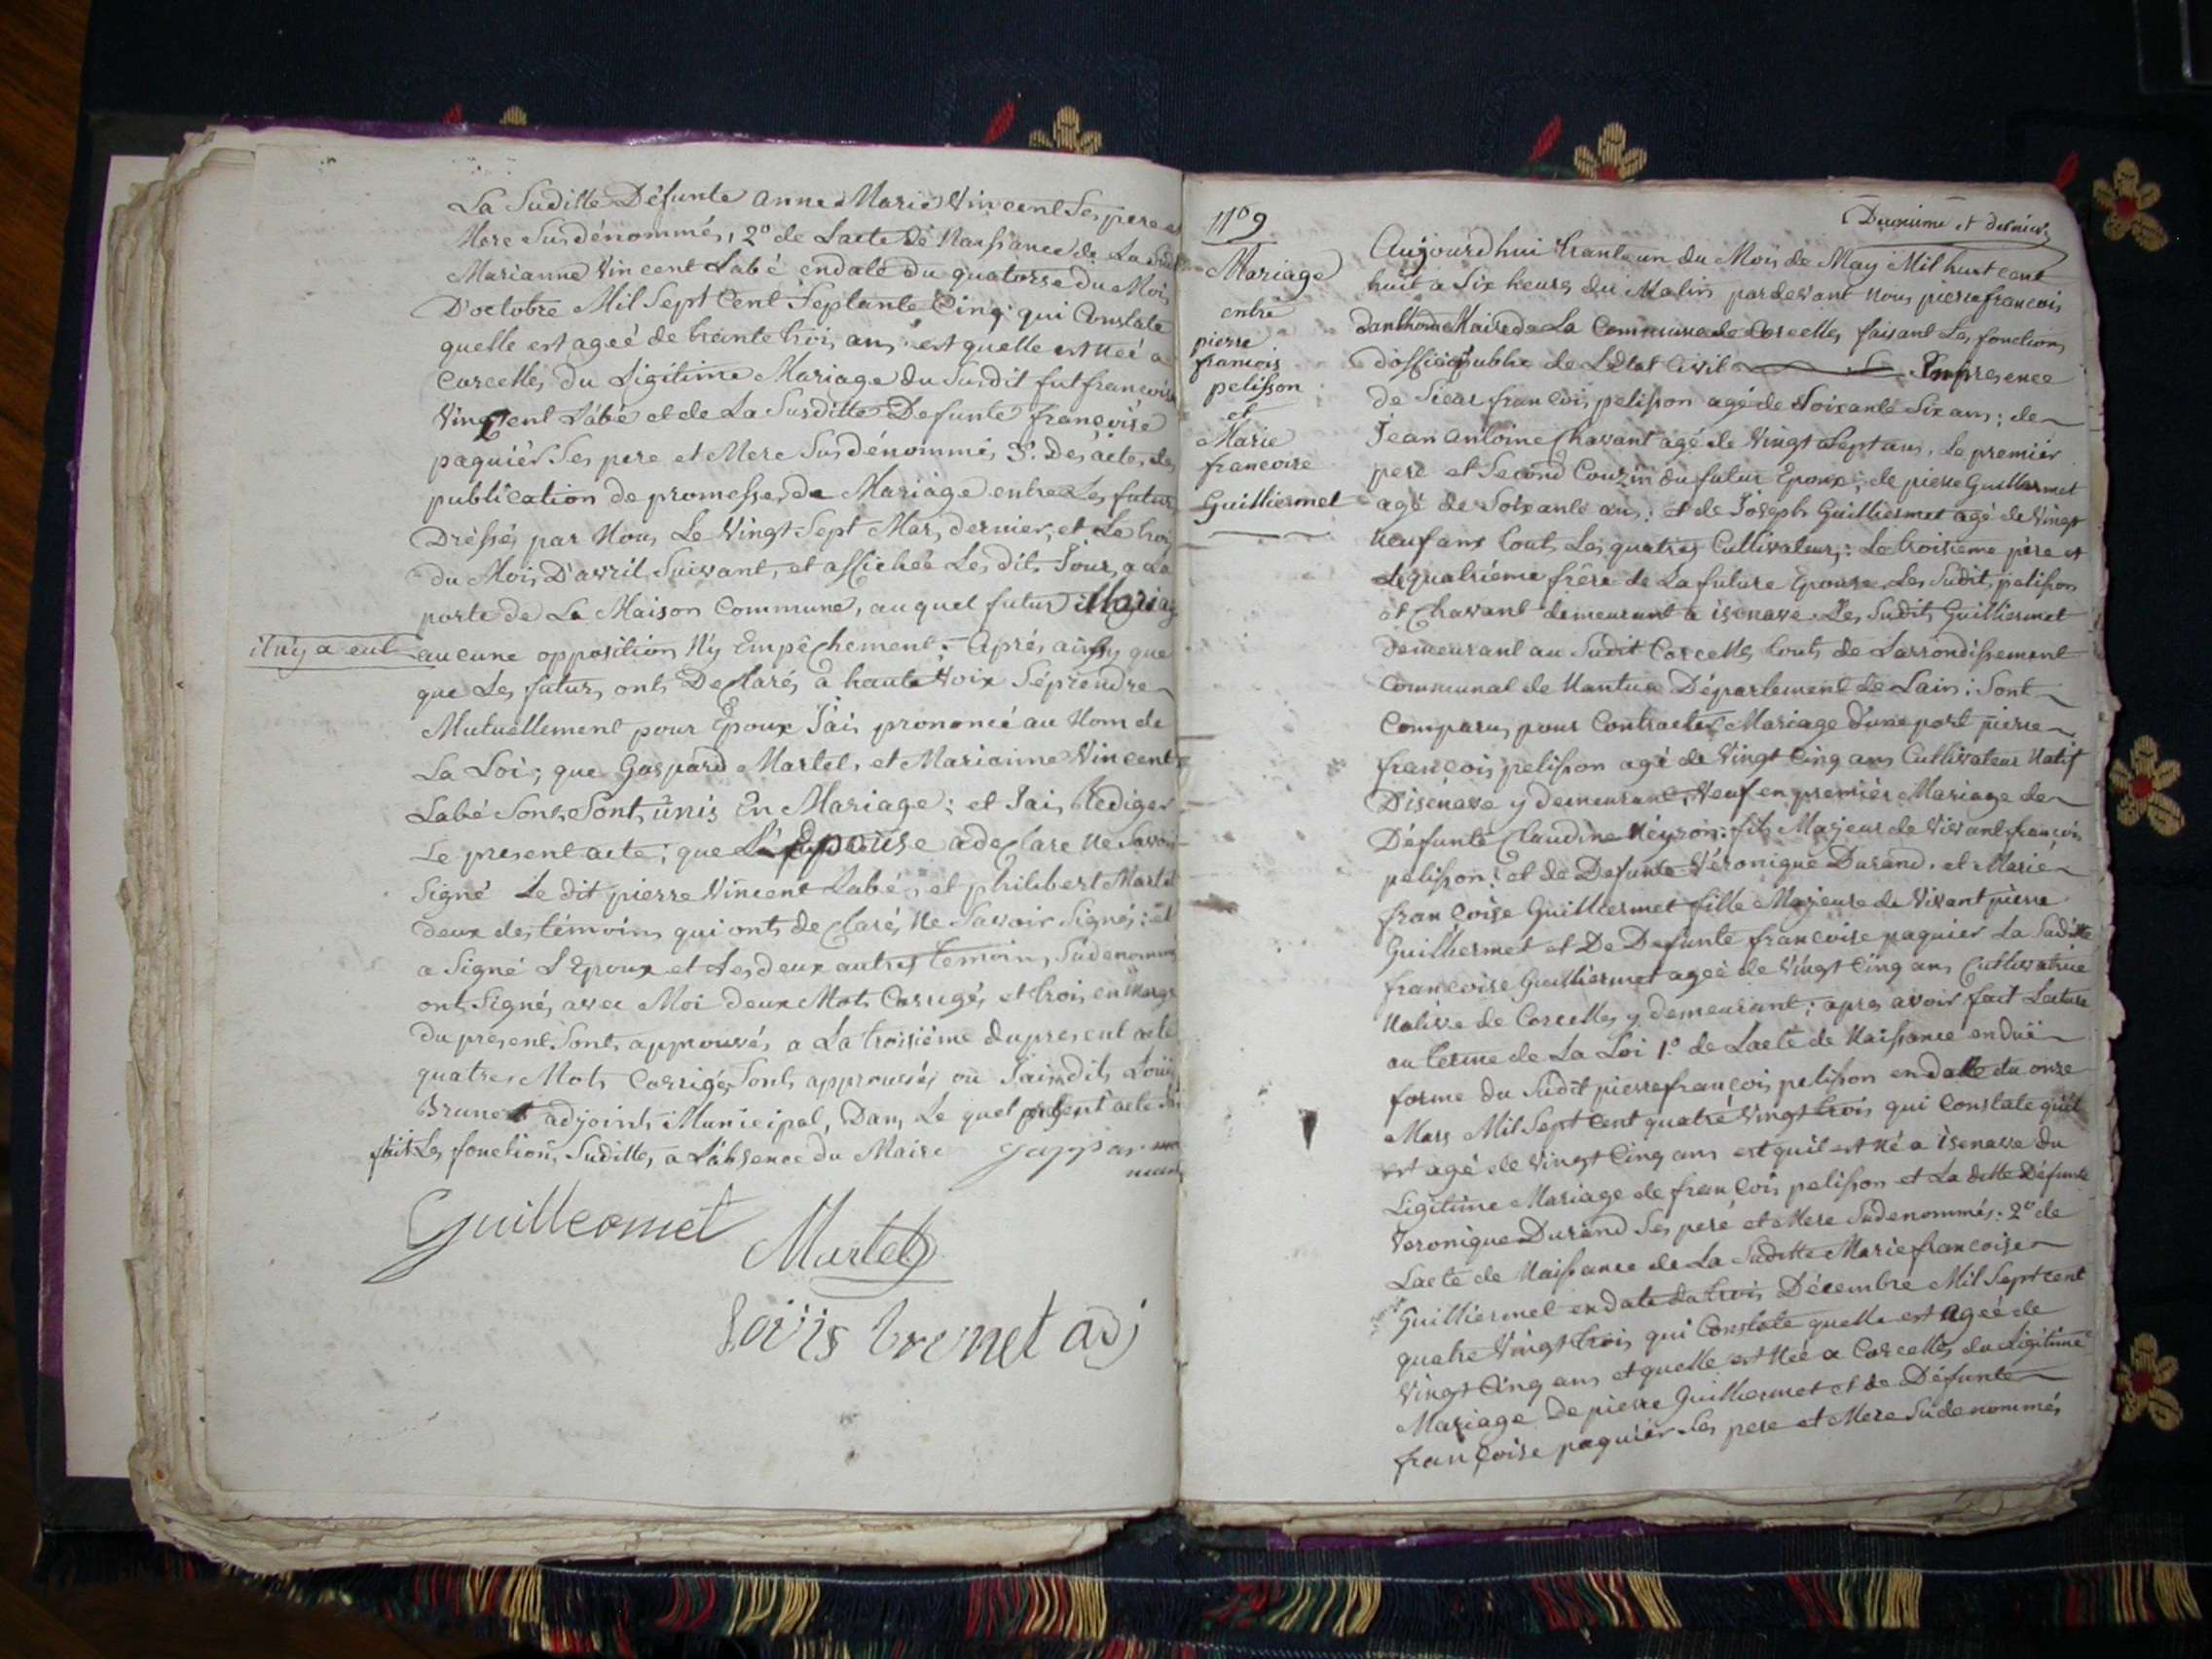 La Suditte Défunte anne Marie Vincent Ses pere et
Mere Susdénommés, 2º de Lacte de Naissance de La Sudit
Marianne Vincent Labé endate du quatorse du Mois
D'octobre Mil Sept Cent Septante Cinq qui Constate
quelle est ageé de trente trois ans est quelle est Neé a
Corcelles du Ligitime Mariage du Susdit fut françois
Vincent Labé et de La Susditte Defunte françoise
paquier Ses pere et Mere Susdénommés 3º. Des actes de
publication de promesses de Mariage entre Les futurs
Dréssés par Nous Le Vingt Sept Mars dernier, et Le trois
du Mois D'avril Suivant, et affichée Les dits Jours a La
porte de La Maison Commune, au quel futur Mariage
il ny a eut aucune opposition Ny Empêchement; Aprés ainsy que
que Les futurs onts Declarés a haute Voix Séprendre
Mutuellement pour Epoux Jai prononcé au Nom de
La Loi; que Gaspard Martel, et Marianne Vincent
Labé Sont Sont ünis En Mariage; et Jai Rediger
Le present acte; que L'Epouse a declare Ne Savoir
Signé Le dit pierre Vincent Labé et philibert Martel
deux des témoins qui onts declarés Ne Savoir Signés: et
a Signé L'Epoux et Les deux autres temoins Sudenommés
ont Signés avec Moi deux Mots Corrigés et trois en Marge
du present Sont approuvés a La troisième du present acte
quatres Mots Corrigés Sont approuvés ou Jaindits Louis
Brunet adjoint Municipal, Dans Le quel present acte
fait Les fonctions Suditte, a L'absence du Maire
Guillermet
Martel
Loüis brunet adj
Deuxieme et dernier
nº 9
Mariage
entre
pierre
francois
pelisson
et
Marie
francoise
Guilliermet
Aujourdhui trante un du Mois de May Mil huit cent
huit a Six heures du Matin pardevant Nous pierre francois
danthon Maire de La Commune de Corcelles faisant Les fonctions
dofficier publix de Letat Civil En presence
de Sieur francois pelisson agé de Soixante Six ans; de
Jean antoine Chavant agé de Vingt Sept ans. Le premier
pere et Second Couzin du futur Epoux; de pierre Guilliermet
agé de Soixante ans; et de Joseph Guilliermet agé de Vingt
Neuf ans touts Les quatres Cultivateurs; Le troisieme père et
Le quatriéme frêre de La future Epouse. Les Sudits pelisson
et Chavant demeurant a isenave. Les Sudits Guilliermet
Demeurant au Sudit Corcelles touts de Larrondissement
Communal de Nantua Département de Lain: Sont
Comparus pour Contracter Mariage d'une part pierre
françois pelisson agé de Vingt Cinq ans Cultivateur Natif
D'isénave y demeurant. Veuf en premier Mariage de
Défunte Claudine Néyron; fils Majeur de Vivant françois
pelisson; et de Defunte Véronique Durand. et Marie
françoise Guilliermet fille Majeure de Vivant pierre
Guilliermet et De Defunte francoise paquier La Suditte
francoise Guilliermet ageé de Vingt Cinq ans Cultivatrice
Native de Corcelles y demeurant; apres avoir fait Lecture
au terme de La Loi 1º. de Lacte de Naissance en duë
forme du Sudit pierre françois pelisson en datte du onze
Mars Mil Sept Cent quatre Vingt trois qui Constate quil
est agé de Vingt Cinq ans est quil est Né a isenave du
Ligitime Mariage de françois pelisson et La ditte Défunte
Veronique Durand Ses peré et Mere Sudenommés: 2º de
Lacte de Naissance de La Suditte Marie francoise
Guilliermet en date du trois Décembre Mil Sept cent
quatre Vingt trois qui Constate quelle est ageé de
Vingt Cinq ans et quelle est Neé a Corcelles du Ligitime
Mariage De pierre Guilliermet et de Défunte
françoise paquier Ses pere et Mere Sudenommés